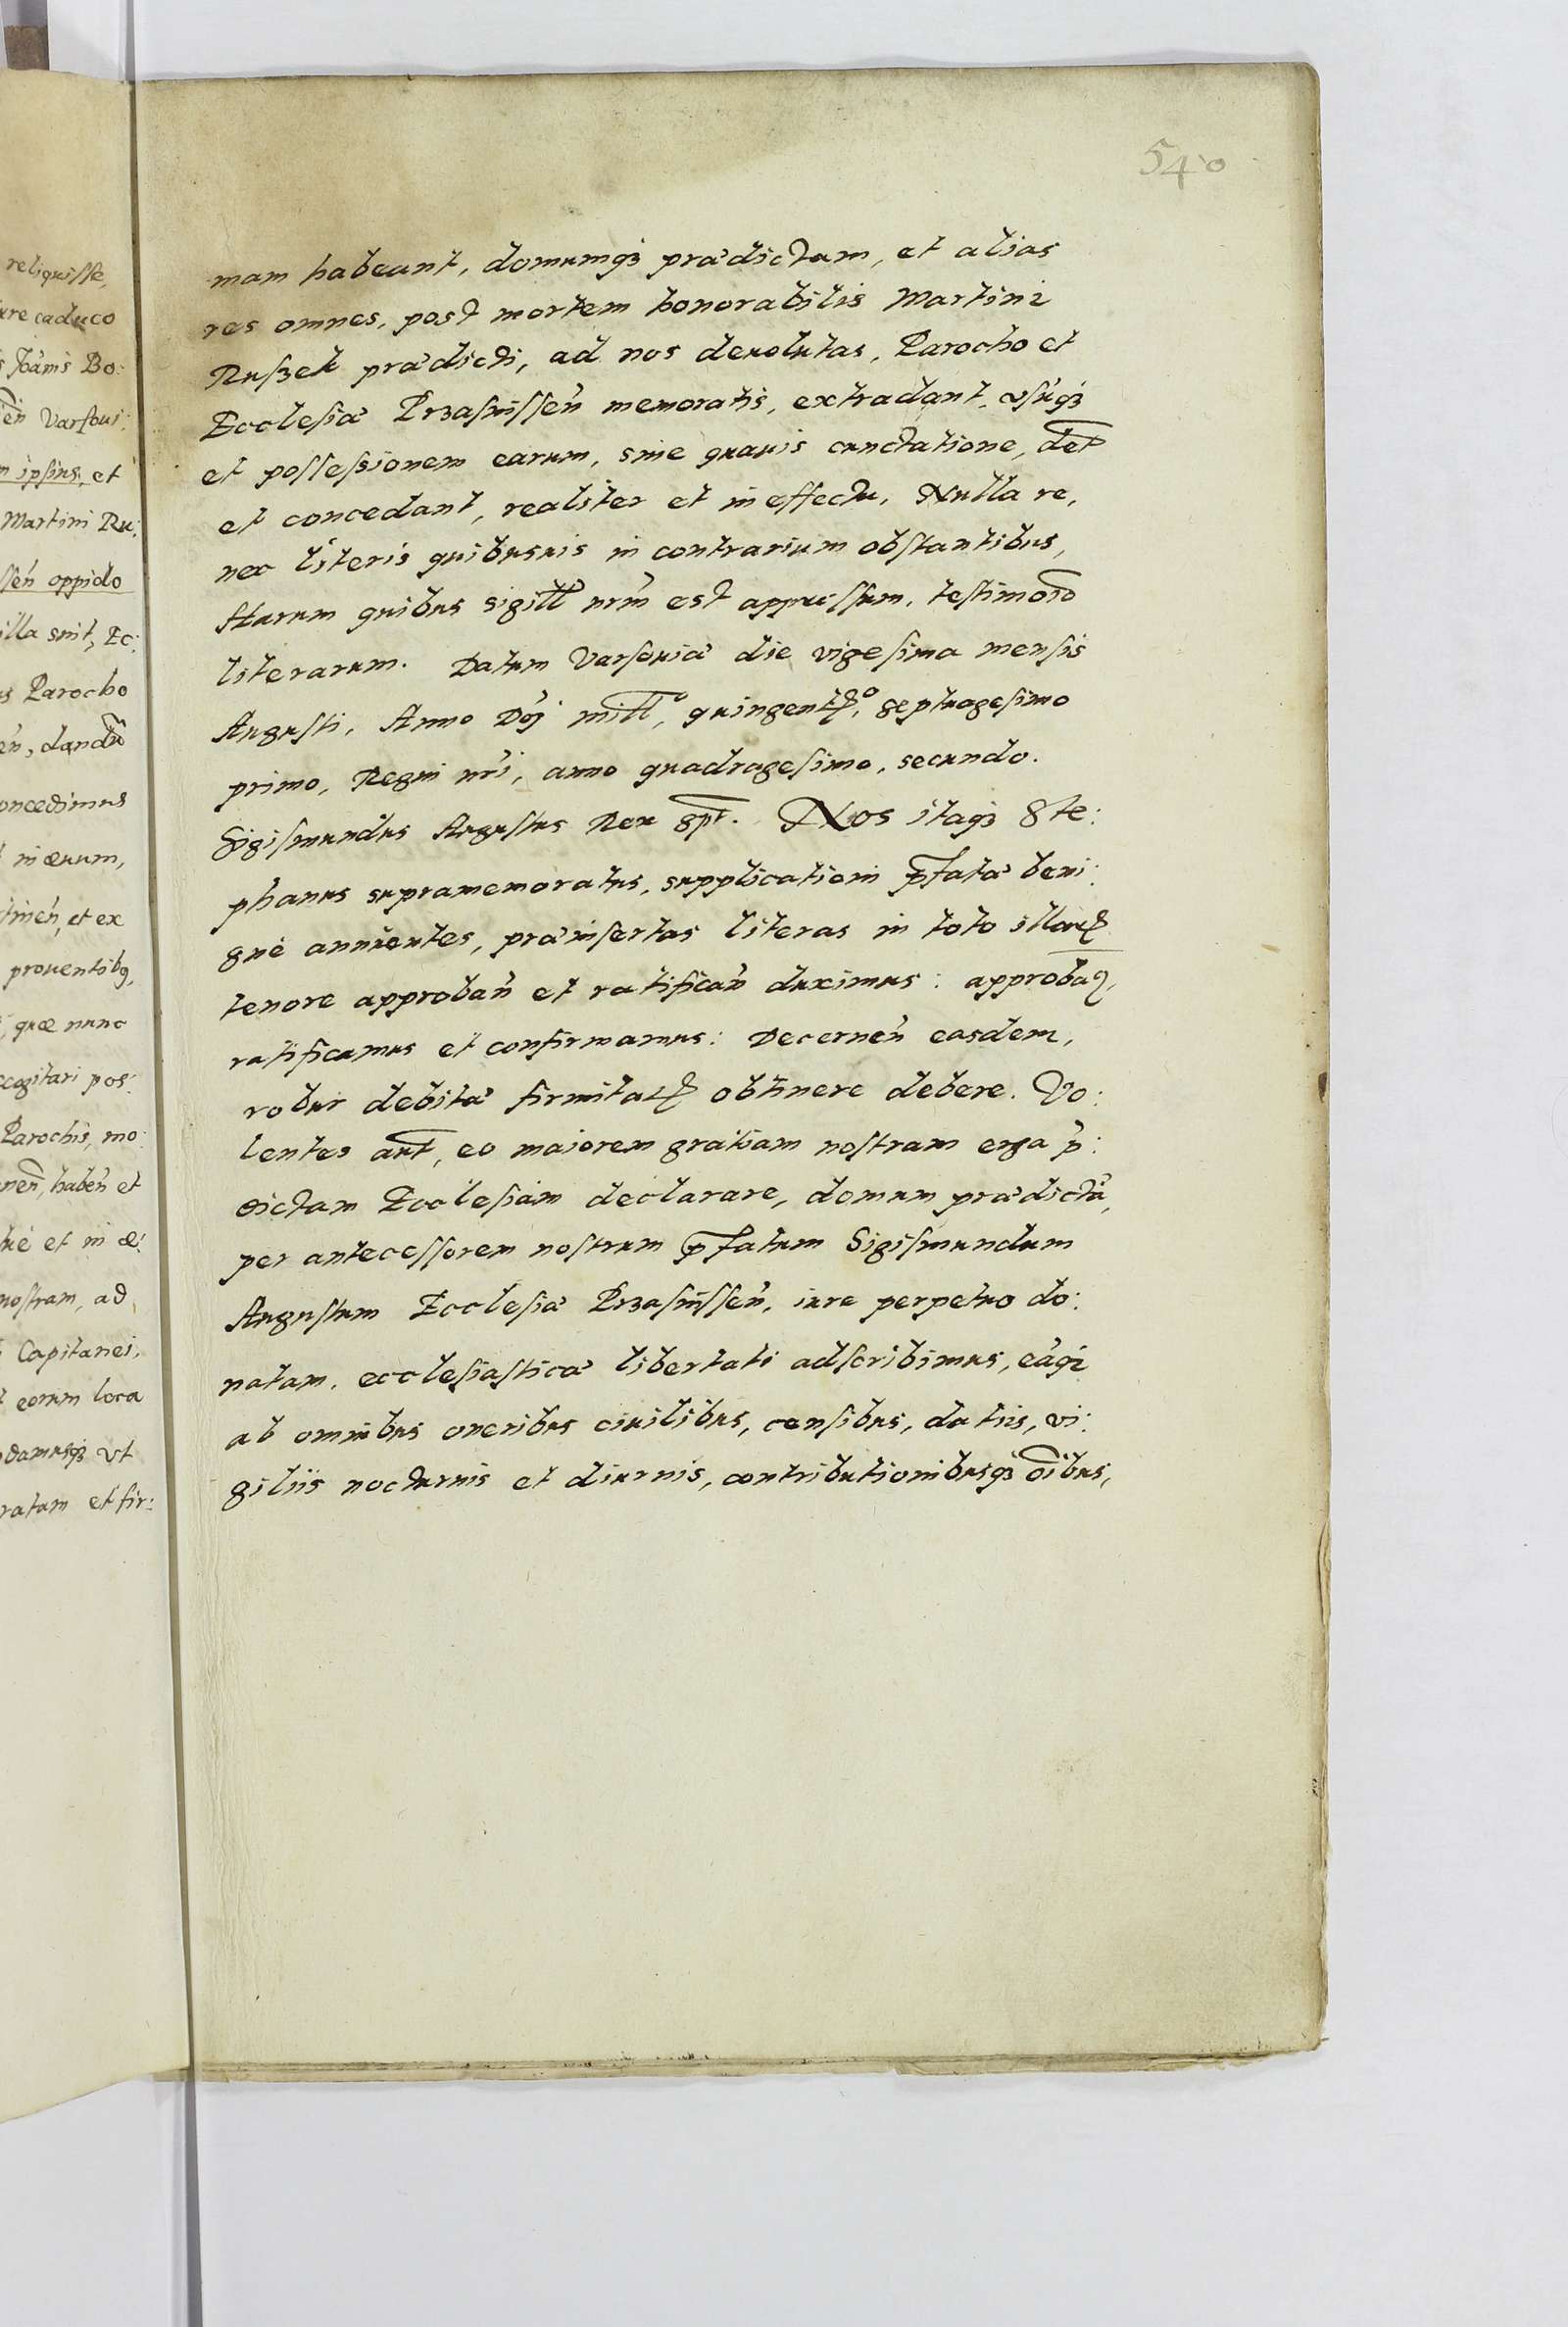 reliquisse,
ure caduco
s Joãnis Bo:
eñ Varsoui:
m ipsius, et
Martini Ru:
sseń oppido
illa sint, Ec:
us Parocho
eń, dandũ
oncedimus
in æuum,
tineń, et ex
prouentibq,
, quæ nunc
xcogitari pos:
Parochis, mo:
neñ, habeń et
uè et in æ:
nostram, ad
Capitanei,
eorum loca
damusq3 vt
ratam et fir:
540
mam habeant, domumq3 prædictam, et alias
res omnes, post mortem honorabilis Martini
Ruszek prædicti, ad nos deuolutas, Parocho et
Ecclesiæ Przasnisseń memoratis, extradant, vsũq3
et possessionem earum, sine quauis cunctatione, det
et concedant, realiter et in effectu, Nulla re,
nec literis quibusuis in contrarium obstantibus,
Harum quibus sigill nrm̃ est appressum, testimoĩo
literarum. Datum Varsouiæ die vigesima mensis
Augusti, Anno Dñj mill̃o, quingent̃o, septuagesimo
primo, Regni nr̃i, anno quadragesimo, secundo.
Sigismundus Augustus Rex spt̃. Nos itaq3 Ste:
phanus supramemoratus, supplicationi p̃fatæ beni:
gnè annuentes, præinsertas literas in toto illarꝝ
tenore approbań et ratificań duximus: approbaꝝ,
ratificamus et confirmamus: Decerneń easdem,
robur debitæ firmitaꝭ obtinere debere. Vo:
lentes aut̃, eo maiorem gratiam nostram erga p̃:
dictam Ecclesiam declarare, domum prædictã,
per antecessorem nostrum p̃fatum Sigismundum
Augustum Ecclesiæ Przasnisseń, iure perpetuo do:
natam, ecclesiasticæ libertati adscribimus, eãq3
ab omnibus oneribus ciuilibus, censibus, datiis, vi:
giliis nocturnis et diurnis, contributionibusq3 oĩbus,